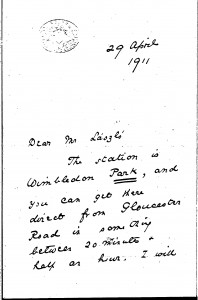 29 April
1911
Dear Mr László
The station is
Wimbledon Park, and
you can get here
direct from Gloucester
Road in something
between 20 minutes &
half an hour. I will